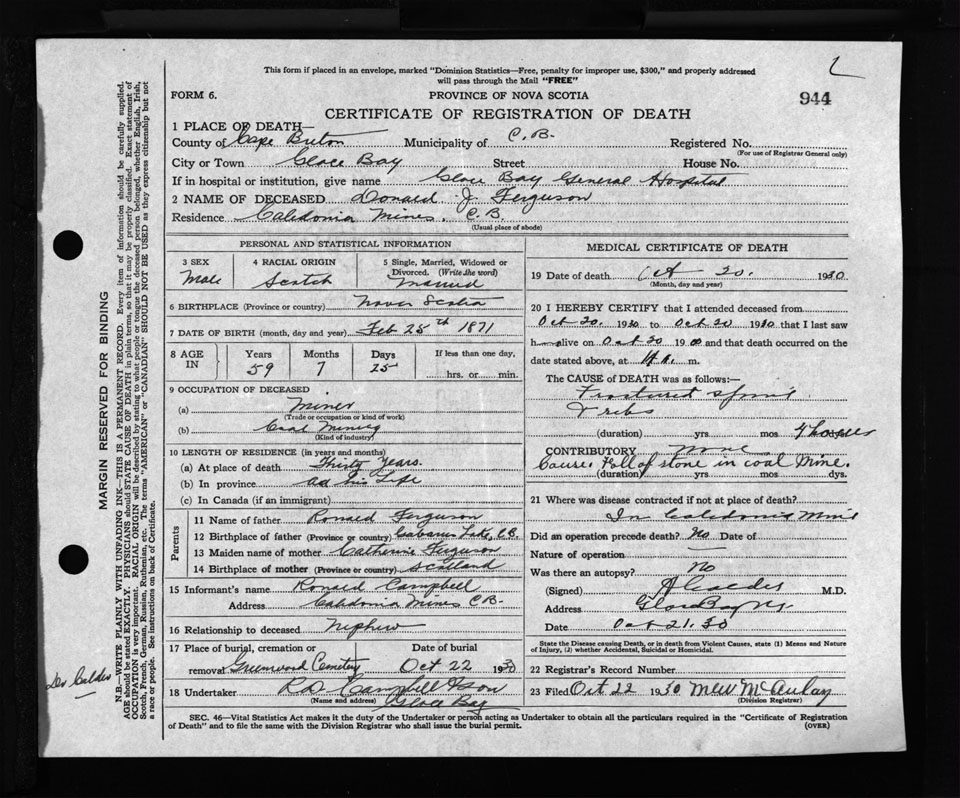 This form if placed in an envelope, marked "Dominion Statistics—Free, penalty for improper use, $300," and properly addressed
will pass through the Mail "FREE"
FORM 6.
PROVINCE OF NOVA SCOTIA
944
CERTIFICATE OF REGISTRATION OF DEATH
1 PLACE OF DEATH—
County of Cape Breton Municipality of C. B. Registered No.
(For use of Registrar General only)
City or Town Glace Bay Street House No.
If in hospital or institution, give name Glace Bay General Hospital
2 NAME OF DECEASED Donald J. Ferguson
Residence Caledonia Mines, C. B.
(Usual place of abode)
PERSONAL AND STATISTICAL INFORMATION
3 SEX
Male
4 RACIAL ORIGIN
Scotch
5 Single, Married, Widowed or
Divorced. (Write the word)
Married
6 BIRTHPLACE (Province or country) Nova Scotia
7 DATE OF BIRTH (month, day and year) Feb 25th 1871
8 AGE
IN
Years
59
Months
7
Days
25
If less than one day,
hrs. or min.
9 OCCUPATION OF DECEASED
(a) Miner
(Trade or occupation or kind of work)
(b) Coal Mining
(Kind of industry)
10 LENGTH OF RESIDENCE (in years and months)
(a) At place of death Thirty Years.
(b) In province All his Life
(c) In Canada (if an immigrant)
Parents
11 Name of father Ronald Ferguson
12 Birthplace of father (Province or country) Gabarus Lake, C.B.
13 Maiden name of mother Catherine Ferguson
14 Birthplace of mother (Province or country) Scotland
15 Informant's name Ronald Campbell
Address Caledonia Mines C B.
16 Relationship to deceased Nephew
17 Place of burial, cremation or Date of burial
removal Greenwood Cemetery Oct 22 1930
18 Undertaker R.D. Campbell & Son
(Name and address) Glace Bay
MEDICAL CERTIFICATE OF DEATH
19 Date of death Oct 20. 1930
(Month, day and year)
20 I HEREBY CERTIFY that I attended deceased from
Oct 20. 1930 to Oct 20 1930 that I last saw
h alive on Oct 20 19 and that death occurred on the
date stated above, at m.
The CAUSE of DEATH was as follows:—
Fractured spine
& ribs
(duration) yrs mos 4 hours
CONTRIBUTORY
Cause: Fall of stone in coal mine.
(duration) yrs. mos. dys.
21 Where was disease contracted if not at place of death?
In Caledonia Mine
Did an operation precede death? No Date of
Nature of operation
Was there an autopsy? No
(Signed) A Calder M.D.
Address Glace Bay NS
Date Oct 21. 30
State the Disease causing Death, or in death from Violent Causes, state (1) Means and Nature
of Injury, (2) whether Accidental, Suicidal or Homicidal.
22 Registrar's Record Number
23 Filed Oct 22 1930 McAulay
(Division Registrar)
SEC. 46—Vital Statistics Act makes it the duty of the Undertaker or person acting as Undertaker to obtain all the particulars required in the "Certificate of Registration
of Death" and to file the same with the Division Registrar who shall issue the burial permit.
(OVER)
MARGIN RESERVED FOR BINDING
N.B.—WRITE PLAINLY WITH UNFADING INK—THIS IS A PERMANENT RECORD. Every item of information should be carefully supplied.
AGE should be stated EXACTLY. PHYSICIANS should STATE CAUSE OF DEATH in plain terms, so that it may be properly classified. Exact statement of
OCCUPATION is very important. RACIAL ORIGIN will be described by stating to what people or tongue the deceased person belonged, whether English, Irish,
Scotch, French, German, Russian, Ruthenian, etc. The terms "AMERICAN" or "CANADIAN" SHOULD NOT BE USED as they express citizenship but not
a race or people. See instructions on back of Certificate.
Dr Calder